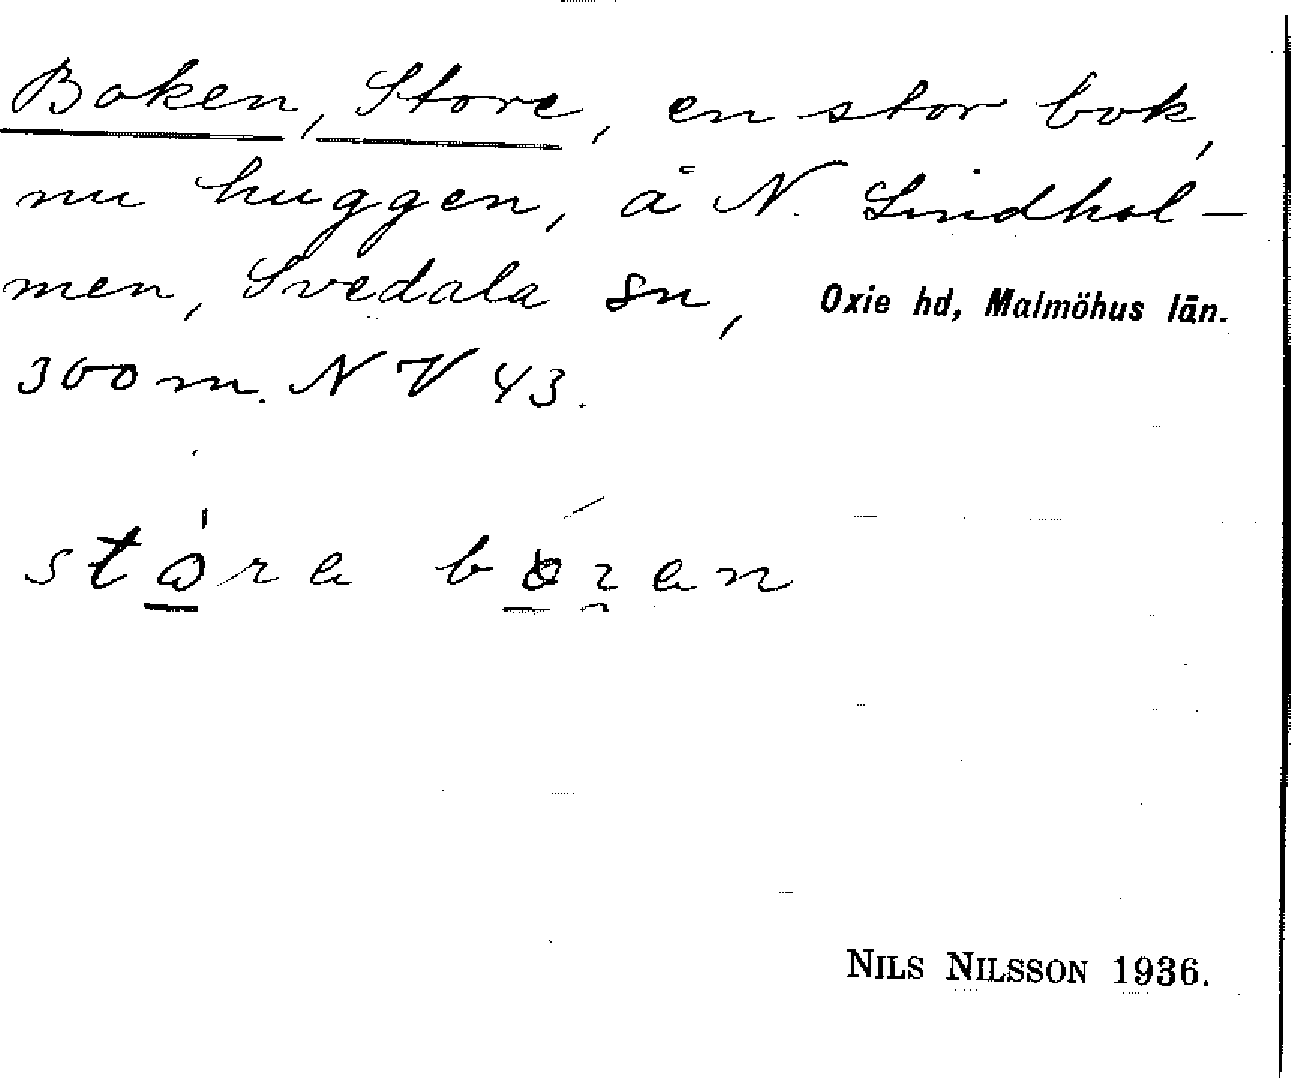 Boken, Store, en stor bok,
nu huggen, å N. Lindhol-
men, Svedala sn, Oxie hd, Malmöhus län.
300 m. NV 43.
stora boran
NILS NILSSON 1936.